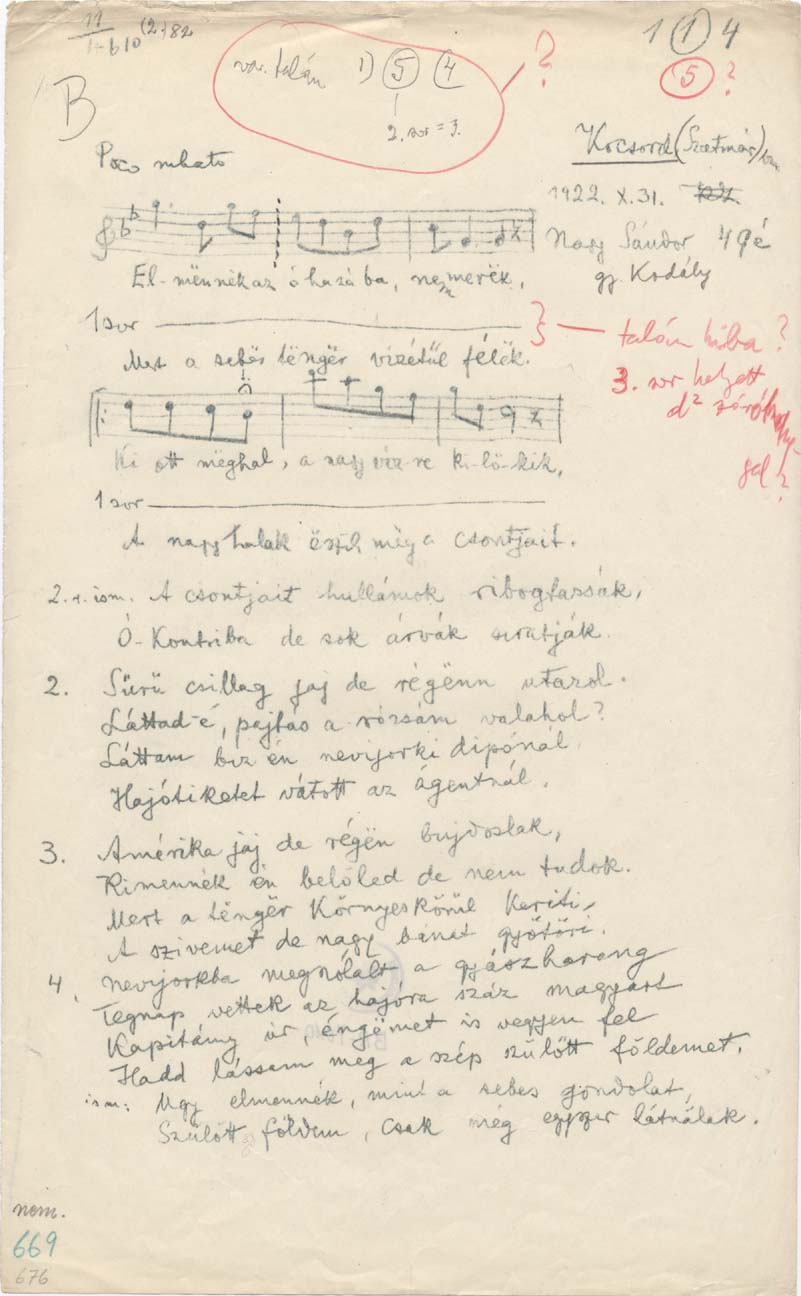 B
var. talán 1) 5 4 ?
2. sor = 3.
1 1 4
5 ?
Poco rubato
Kocsord (Szatmár)
1922. X. 31.
Nagy Sándor 49é
gy. Kodály
El-mënnék az óhazába, nem merëk,
1 sor
Mert a sebës tëngër vizétűl félëk.
talán hiba?
3. sor helyett
d² záróhang-
gal?
Ki ott mëghal, a nagy víz-re ki-lö-kik,
1 sor
A nagy halak ëszik mëg a csontjait.
2. v. ism. A csontjait hullámok ribogtassák,
Ó-Kontriba de sok árvák siratják.
2. Sűrű csillag jaj de régënn utazol.
Láttad-é, pajtás a rózsám valahol?
Láttam biz én nevijorki dipónál,
Hajótiketet vátott az ágentnál.
3. Amérika jaj de régën bujdoslak,
Kimennék én belőled de nem tudok.
Mert a tëngër Környeskörül keríti,
A szivemet de nagy bánat gyötöri.
4. Nevijorkba megszólalt a gyászharang
Tegnap vettek az hajóra száz magyart
Kapitány úr, éngëmet is vegyen fel
Hadd lássam meg a szép szülött földemet.
ism: Ugy elmennék, mint a sebes gondolat,
Szülött földem, csak még egyszer látnálak.
nom.
669
676